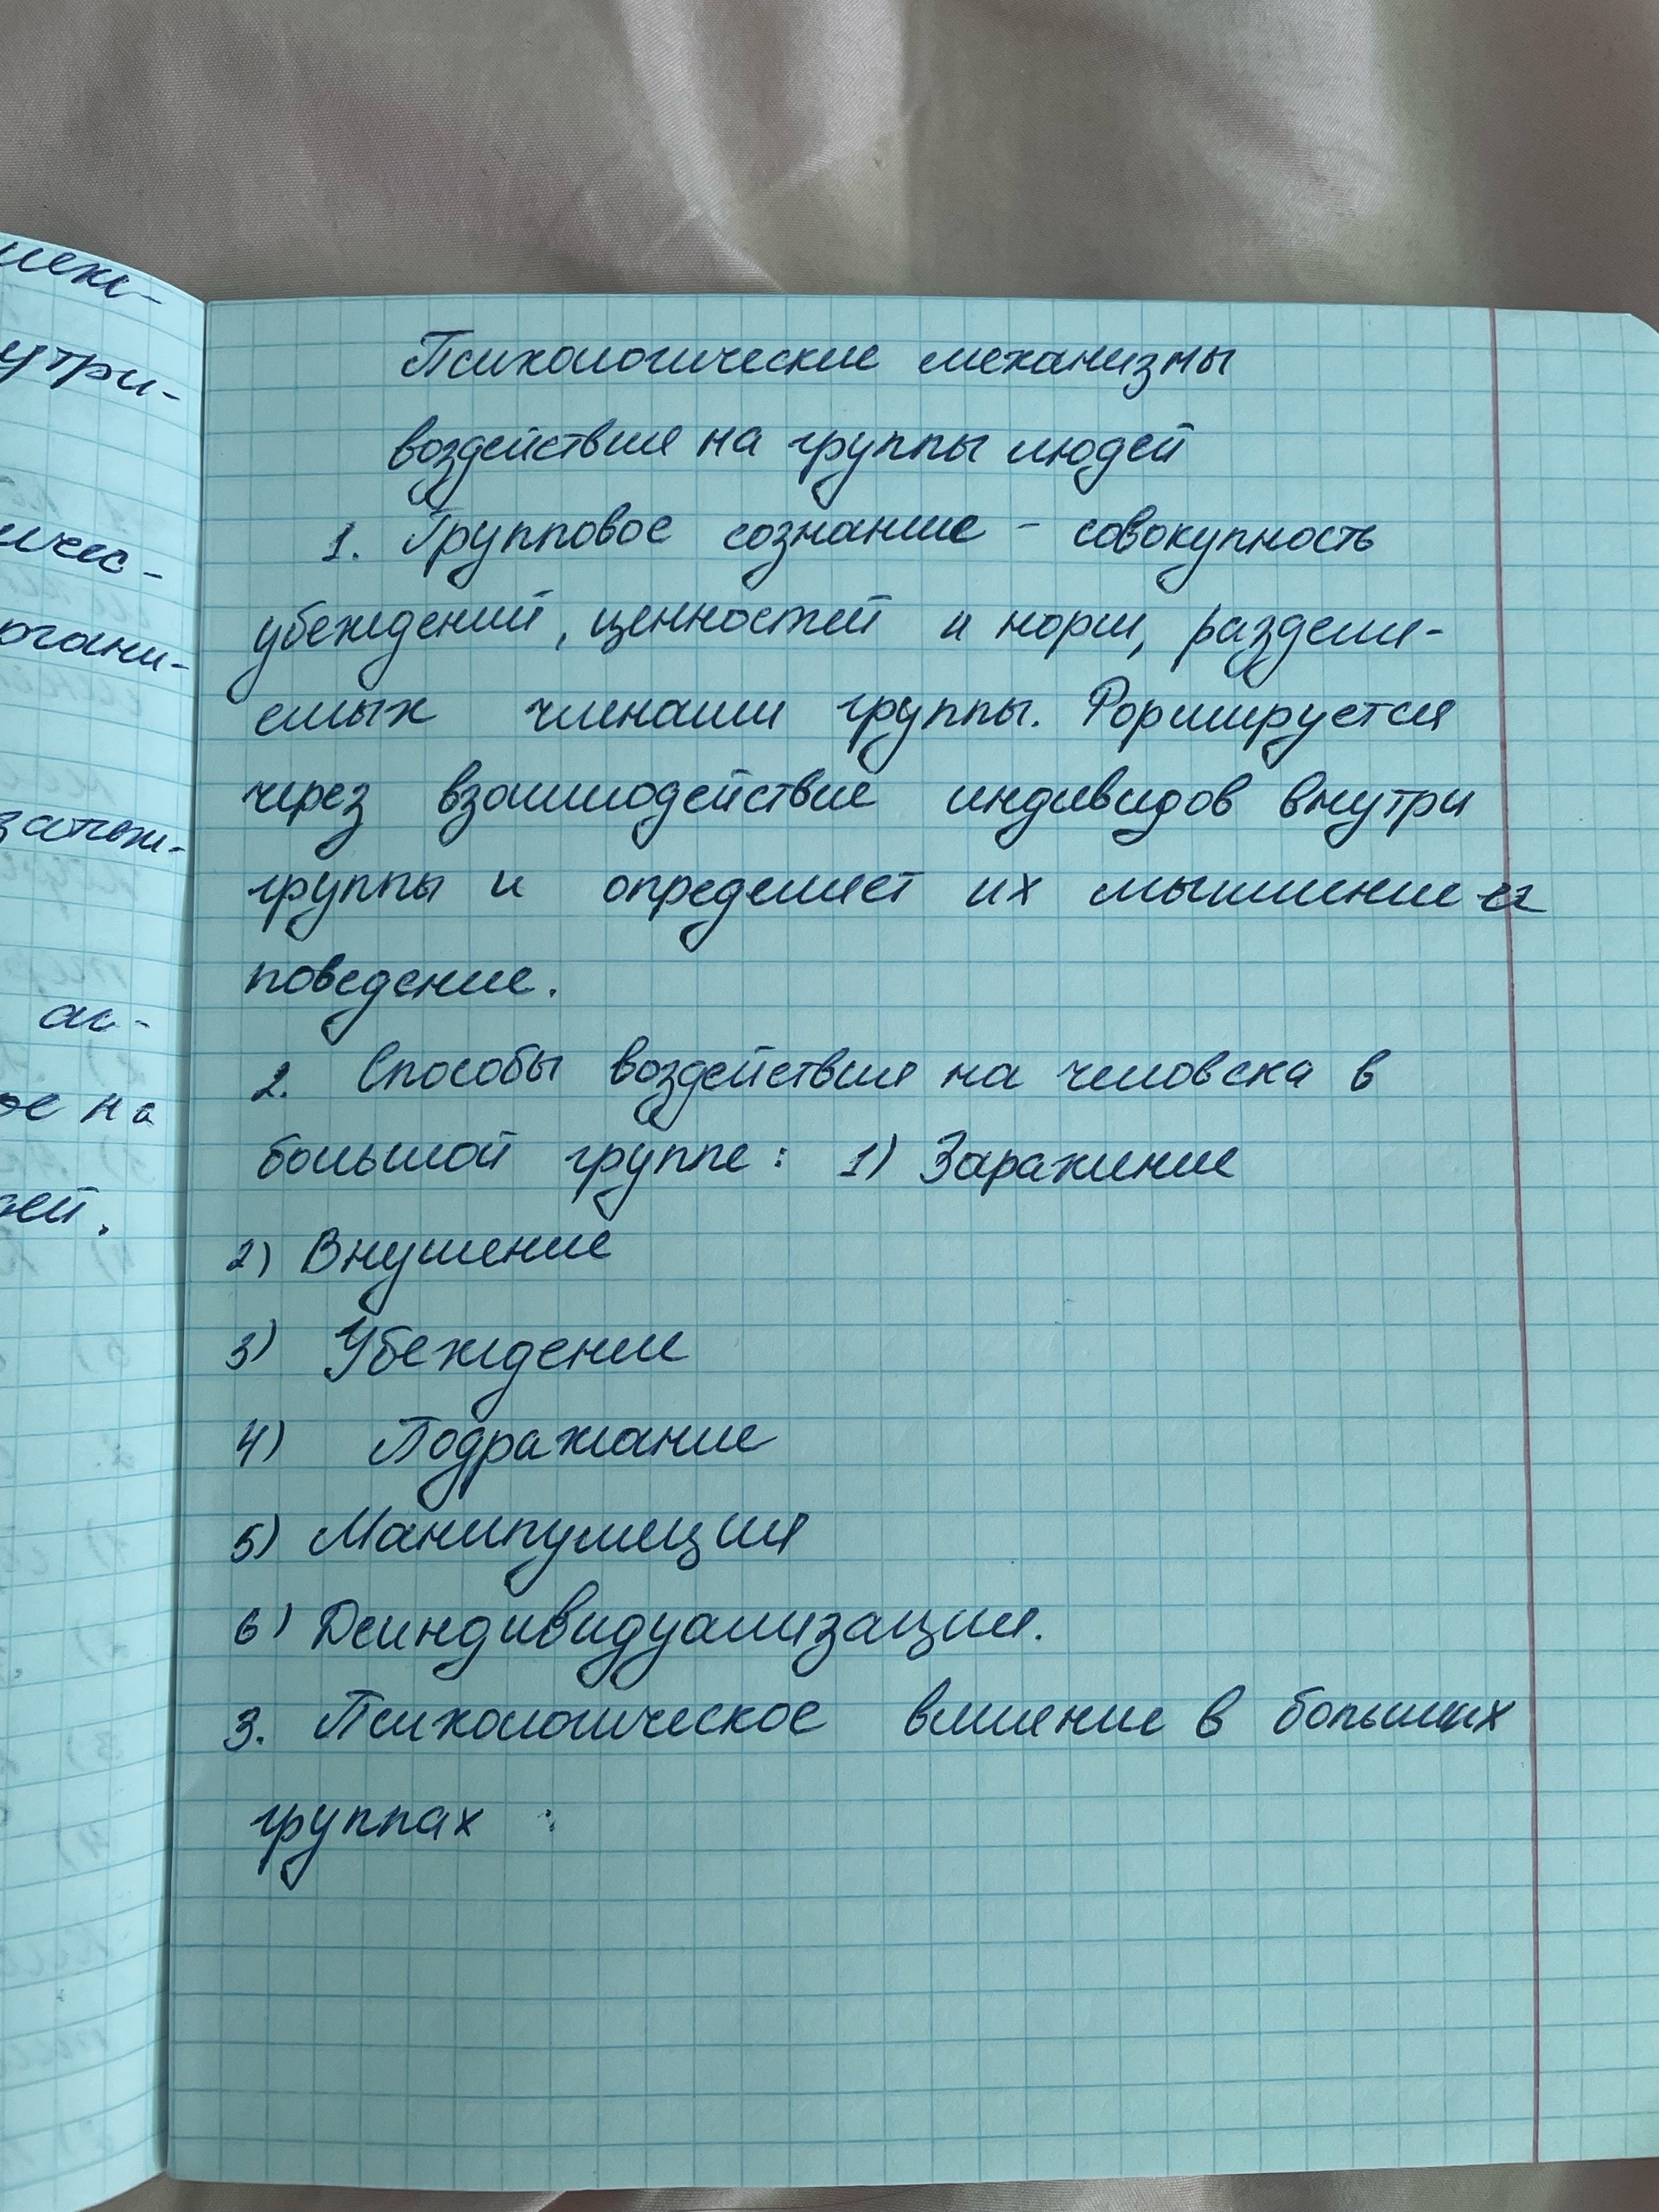 утри-
ичес-
ргани-
ас-
е на
ей.
Психологические механизмы
воздействия на группы людей
1. Групповое сознание - совокупность
убеждений, ценностей и норм, разделя-
емых членами группы. Формируется
через взаимодействие индивидов внутри
группы и определяет их мышление и
поведение.
2. Способы воздействия на человека в
большой группе: 1) Заражение
2) Внушение
3) Убеждение
4) Подражание
5) Манипуляция
6) Деиндивидуализация.
3. Психологическое влияние в больших
группах :